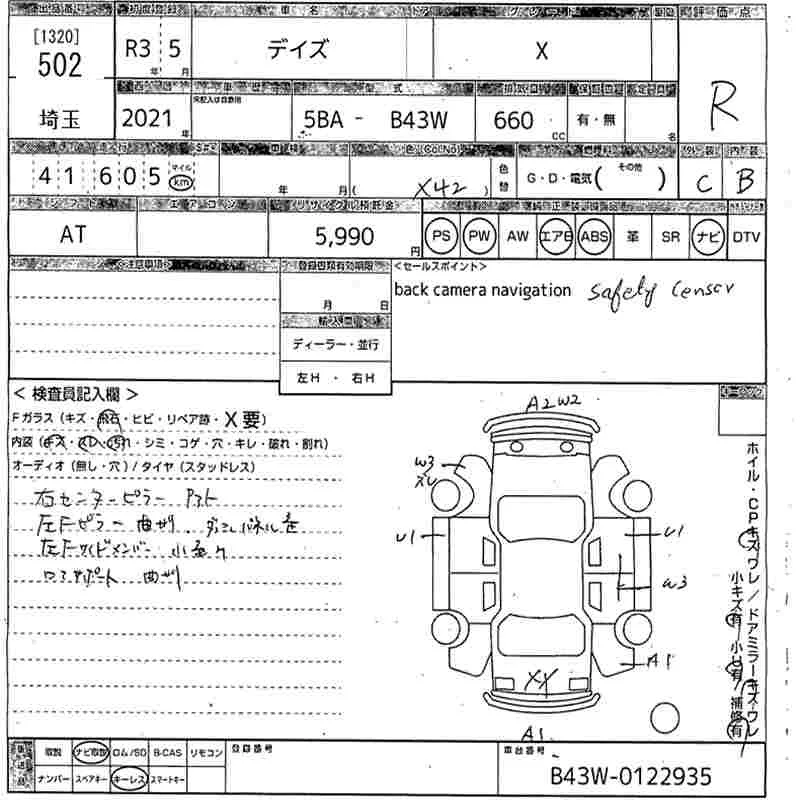 初度登録 車名 ドア グレード 評価点
[1320]
502
R3 5
年 月
デイズ
X
R
埼玉
2021
年
型式
未記入は自家用
5BA - B43W
660
CC
有・無
名
41605
マイル
km
年 月
色(Col No)
( X42 )
色替
G・D・電気( その他 )
外装 内装
C B
シフト エアコン リサイクル預託金
AT
5,990
円
PS PW AW エアB ABS 革 SR ナビ DTV
注意事項
登録書類有効期限
月 日
ディーラー・並行
左H・右H
<セールスポイント>
back camera navigation safety censor
<検査員記入欄>
Fガラス(キズ・飛石・ヒビ・リペア跡・X要)
内装(キズ・スレ・汚れ・シミ・コゲ・穴・キレ・破れ・割れ)
オーディオ(無し・穴)/タイヤ(スタッドレス)
右センターピラー
左Fピラー 曲、ダッシュパネル
左Fサイドメンバー
コアサポート 曲
A2 W2
W3
U1
U1
W3
A1
XX
A1
ホイル・CPキズワレ/ドアミラーキズワレ
小キズ有 小U有 補修有
取説 ナビ取説 ロム/SD B-CAS リモコン
ナンバー スペアキー キーレス スマートキー
登録番号
車台番号
B43W-0122935